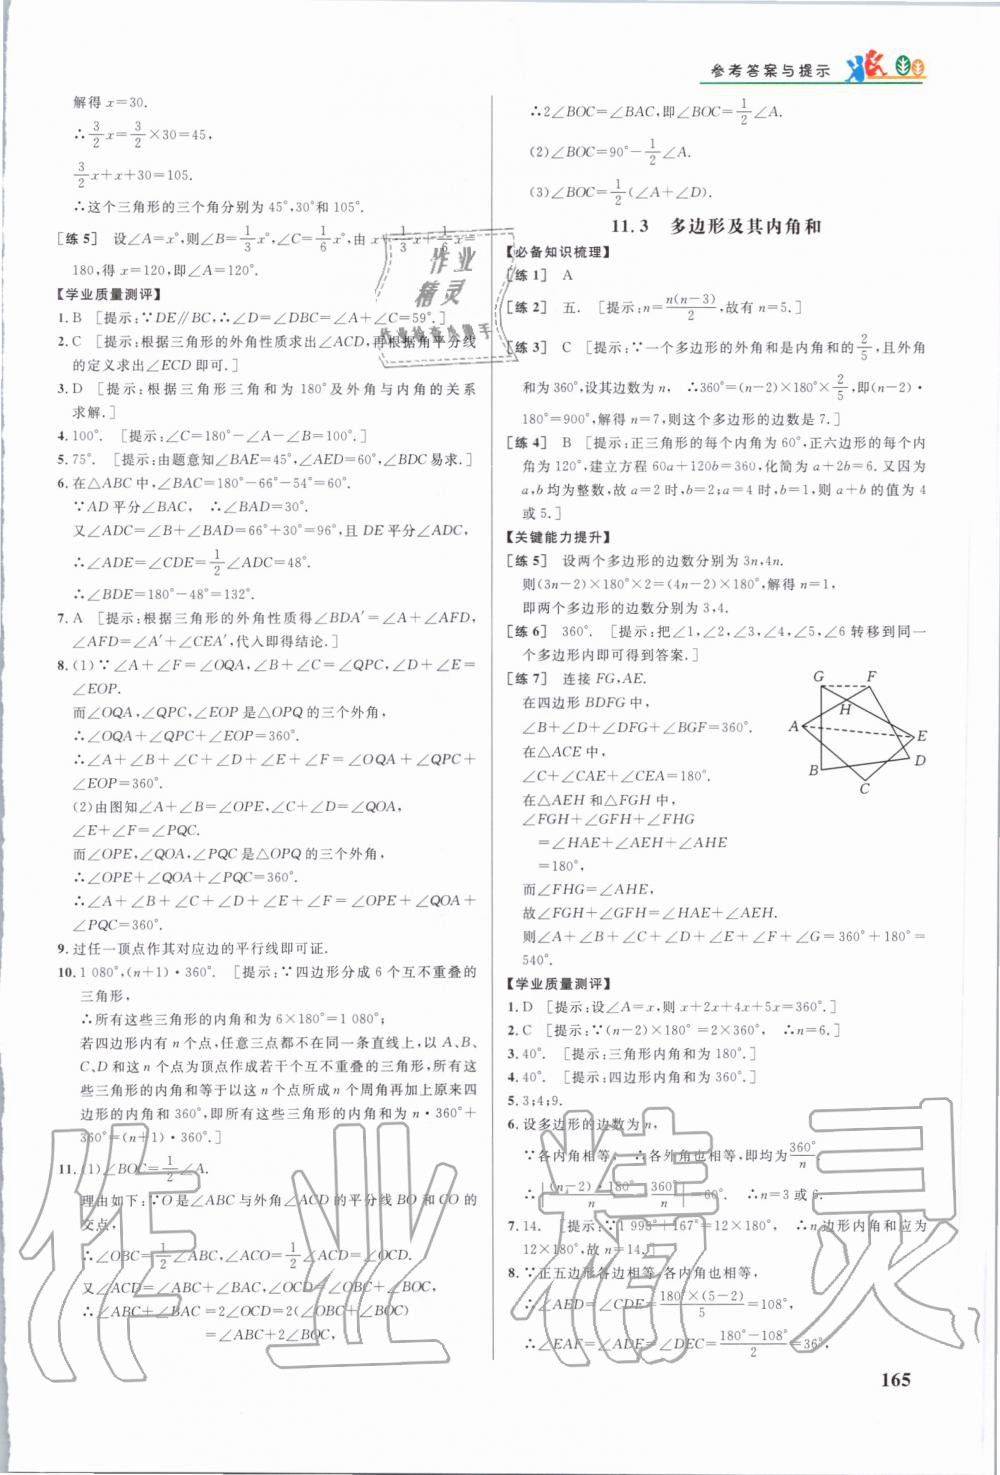 参考答案与提示
解得 x=30.
∴3/2x=3/2×30=45,
3/2x+x+30=105.
∴这个三角形的三个角分别为 45°,30°和 105°.
[练 5] 设∠A=x°,则∠B=1/3x°,∠C=1/6x°,由 x+1/3x+1/6x=
180,得 x=120,即∠A=120°.
【学业质量测评】
1. B [提示:∵DE∥BC,∴∠D=∠DBC=∠A+∠C=59°.]
2. C [提示:根据三角形的外角性质求出∠ACD,再根据角平分线
的定义求出∠ECD 即可.]
3. D [提示:根据三角形三角和为 180°及外角与内角的关系
求解.]
4. 100°. [提示:∠C=180°-∠A-∠B=100°.]
5. 75°. [提示:由题意知∠BAE=45°,∠AED=60°,∠BDC 易求.]
6. 在△ABC 中,∠BAC=180°-66°-54°=60°.
∵AD 平分∠BAC, ∴∠BAD=30°.
又∠ADC=∠B+∠BAD=66°+30°=96°,且 DE 平分∠ADC,
∴∠ADE=∠CDE=1/2∠ADC=48°.
∴∠BDE=180°-48°=132°.
7. A [提示:根据三角形的外角性质得∠BDA′=∠A+∠AFD,
∠AFD=∠A′+∠CEA′,代入即得结论.]
8. (1)∵∠A+∠F=∠OQA,∠B+∠C=∠QPC,∠D+∠E=
∠EOP.
而∠OQA,∠QPC,∠EOP 是△OPQ 的三个外角,
∴∠OQA+∠QPC+∠EOP=360°.
∴∠A+∠B+∠C+∠D+∠E+∠F=∠OQA+∠QPC+
∠EOP=360°.
(2)由图知∠A+∠B=∠OPE,∠C+∠D=∠QOA,
∠E+∠F=∠PQC.
而∠OPE,∠QOA,∠PQC 是△OPQ 的三个外角,
∴∠OPE+∠QOA+∠PQC=360°.
∴∠A+∠B+∠C+∠D+∠E+∠F=∠OPE+∠QOA+
∠PQC=360°.
9. 过任一顶点作其对应边的平行线即可证.
10. 1 080°,(n+1)·360°. [提示:∵四边形分成 6 个互不重叠的
三角形,
∴所有这些三角形的内角和为 6×180°=1 080°;
若四边形内有 n 个点,任意三点都不在同一条直线上,以 A、B、
C、D 和这 n 个点为顶点作成若干个互不重叠的三角形,所有这
些三角形的内角和等于以这 n 个点所成 n 个周角再加上原来四
边形的内角和 360°,即所有这些三角形的内角和为 n·360°+
360°=(n+1)·360°.]
11. (1)∠BOC=1/2∠A.
理由如下:∵O 是∠ABC 与外角∠ACD 的平分线 BO 和 CO 的
交点,
∴∠OBC=1/2∠ABC,∠ACO=1/2∠ACD=∠OCD.
又∠ACD=∠ABC+∠BAC,∠OCD=∠OBC+∠BOC,
∴∠ABC+∠BAC=2∠OCD=2(∠OBC+∠BOC)
=∠ABC+2∠BOC,
∴2∠BOC=∠BAC,即∠BOC=1/2∠A.
(2)∠BOC=90°-1/2∠A.
(3)∠BOC=1/2(∠A+∠D).
11.3 多边形及其内角和
【必备知识梳理】
[练 1] A
[练 2] 五. [提示:n=n(n-3)/2,故有 n=5.]
[练 3] C [提示:∵一个多边形的外角和是内角和的2/5,且外角
和为 360°,设其边数为 n, ∴360°=(n-2)×180°×2/5,即(n-2)·
180°=900°,解得 n=7,则这个多边形的边数是 7.]
[练 4] B [提示:正三角形的每个内角为 60°,正六边形的每个内
角为 120°,建立方程 60a+120b=360,化简为 a+2b=6.又因为
a,b 均为整数,故 a=2 时,b=2;a=4 时,b=1,则 a+b 的值为 4
或 5.]
【关键能力提升】
[练 5] 设两个多边形的边数分别为 3n,4n.
则(3n-2)×180°×2=(4n-2)×180°,解得 n=1,
即两个多边形的边数分别为 3,4.
[练 6] 360°. [提示:把∠1,∠2,∠3,∠4,∠5,∠6 转移到同一
个多边形内即可得到答案.]
[练 7] 连接 FG,AE.
在四边形 BDFG 中,
∠B+∠D+∠DFG+∠BGF=360°.
在△ACE 中,
∠C+∠CAE+∠CEA=180°.
在△AEH 和△FGH 中,
∠FGH+∠GFH+∠FHG
=∠HAE+∠AEH+∠AHE
=180°,
而∠FHG=∠AHE,
故∠FGH+∠GFH=∠HAE+∠AEH.
则∠A+∠B+∠C+∠D+∠E+∠F+∠G=360°+180°=
540°.
G F
H
A
E
D
B
C
【学业质量测评】
1. D [提示:设∠A=x,则 x+2x+4x+5x=360°.]
2. C [提示:∵(n-2)×180°=2×360°, ∴n=6.]
3. 40°. [提示:三角形内角和为 180°.]
4. 40°. [提示:四边形内角和为 360°.]
5. 3;4;9.
6. 设多边形的边数为 n,
∵各内角相等, ∴各外角也相等,即均为360°/n,
∴|(n-2)·180°/n-360°/n|=60°. ∴n=3 或 6.
7. 14. [提示:∵1 995°+167°=12×180°, ∴n 边形内角和应为
12×180°,故 n=14.]
8. ∵正五边形各边相等,各内角也相等,
∴∠AED=∠CDE=180°×(5-2)/5=108°,
∴∠EAF=∠ADE=∠DEC=180°-108°/2=36°,
165
作业
精灵
作业检查小帮手
作业精灵